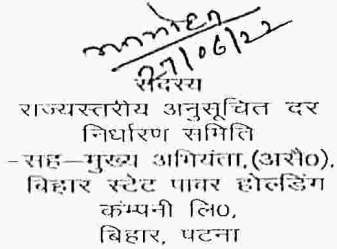 27/06/22
सदस्य
राज्यस्तरीय अनुसूचित दर
निर्धारण समिति
-सह-मुख्य अभियंता,(असै0),
बिहार स्टेट पावर होल्डिंग
कंम्पनी लि0,
बिहार, पटना